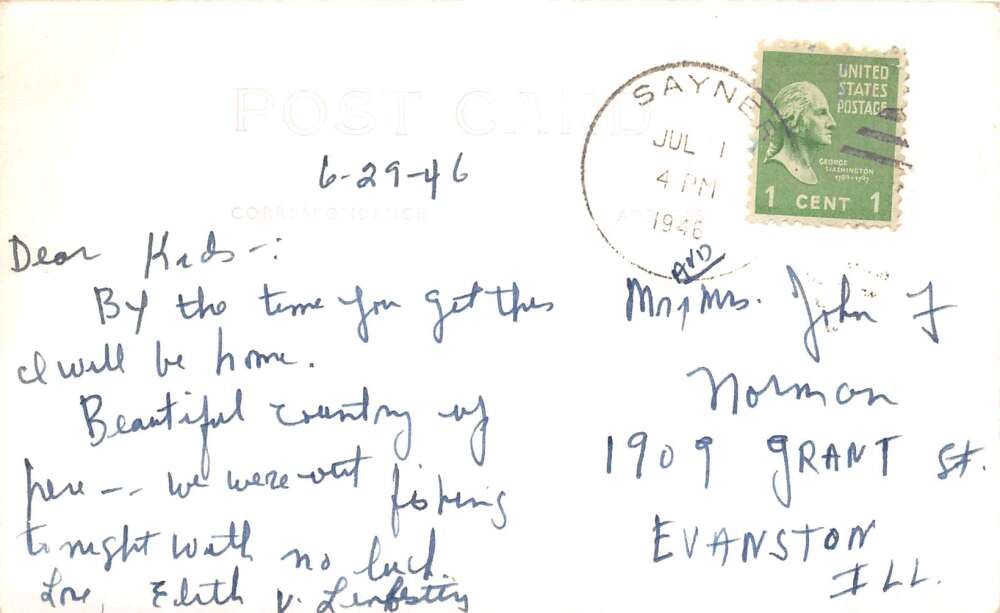 POST CARD
SAYNER
JUL 1
4 PM
1946
UNITED
STATES
POSTAGE
GEORGE
WASHINGTON
1789-1797
1 CENT 1
6-29-46
CORRESPONDENCE
ADDRESS
Dear Kids -:
By the time you get this
I will be home.
Beautiful country up
here -- we were out fishing
tonight with no luck.
Love, Edith
AND
Mr & Mrs. John F
Norman
1909 GRANT St.
EVANSTON
ILL.